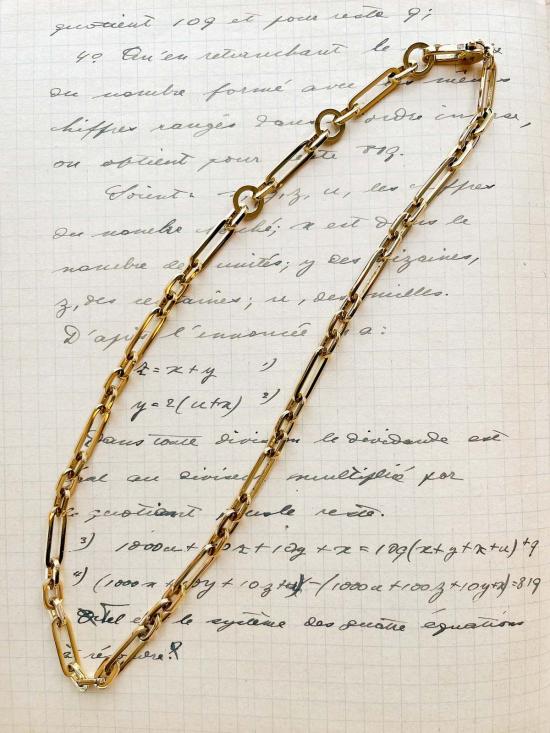 quotient 109 et pour reste 9;
4° Qu'en retranchant le
du nombre formé avec les mêmes
chiffres rangés dans ordre inverse,
on obtient pour reste 819.
Soient z, u, les chiffres
du nombre cherché; x est dans le
nombre des unités; y des dizaines,
z, des centaines; u, des milles.
D'après l'énoncé a:
z = x + y 1)
y = 2(u+x) 2)
Dans toute division le dividende est
au diviseur multiplié par
quotient plus le reste.
3) 1000u + + 10y + x = 109(x+y+z+u)+9
4) (1000x + + 10z +u) - (1000u+100z+10y+x)=819
Tel est le système des quatre équations
à résoudre?